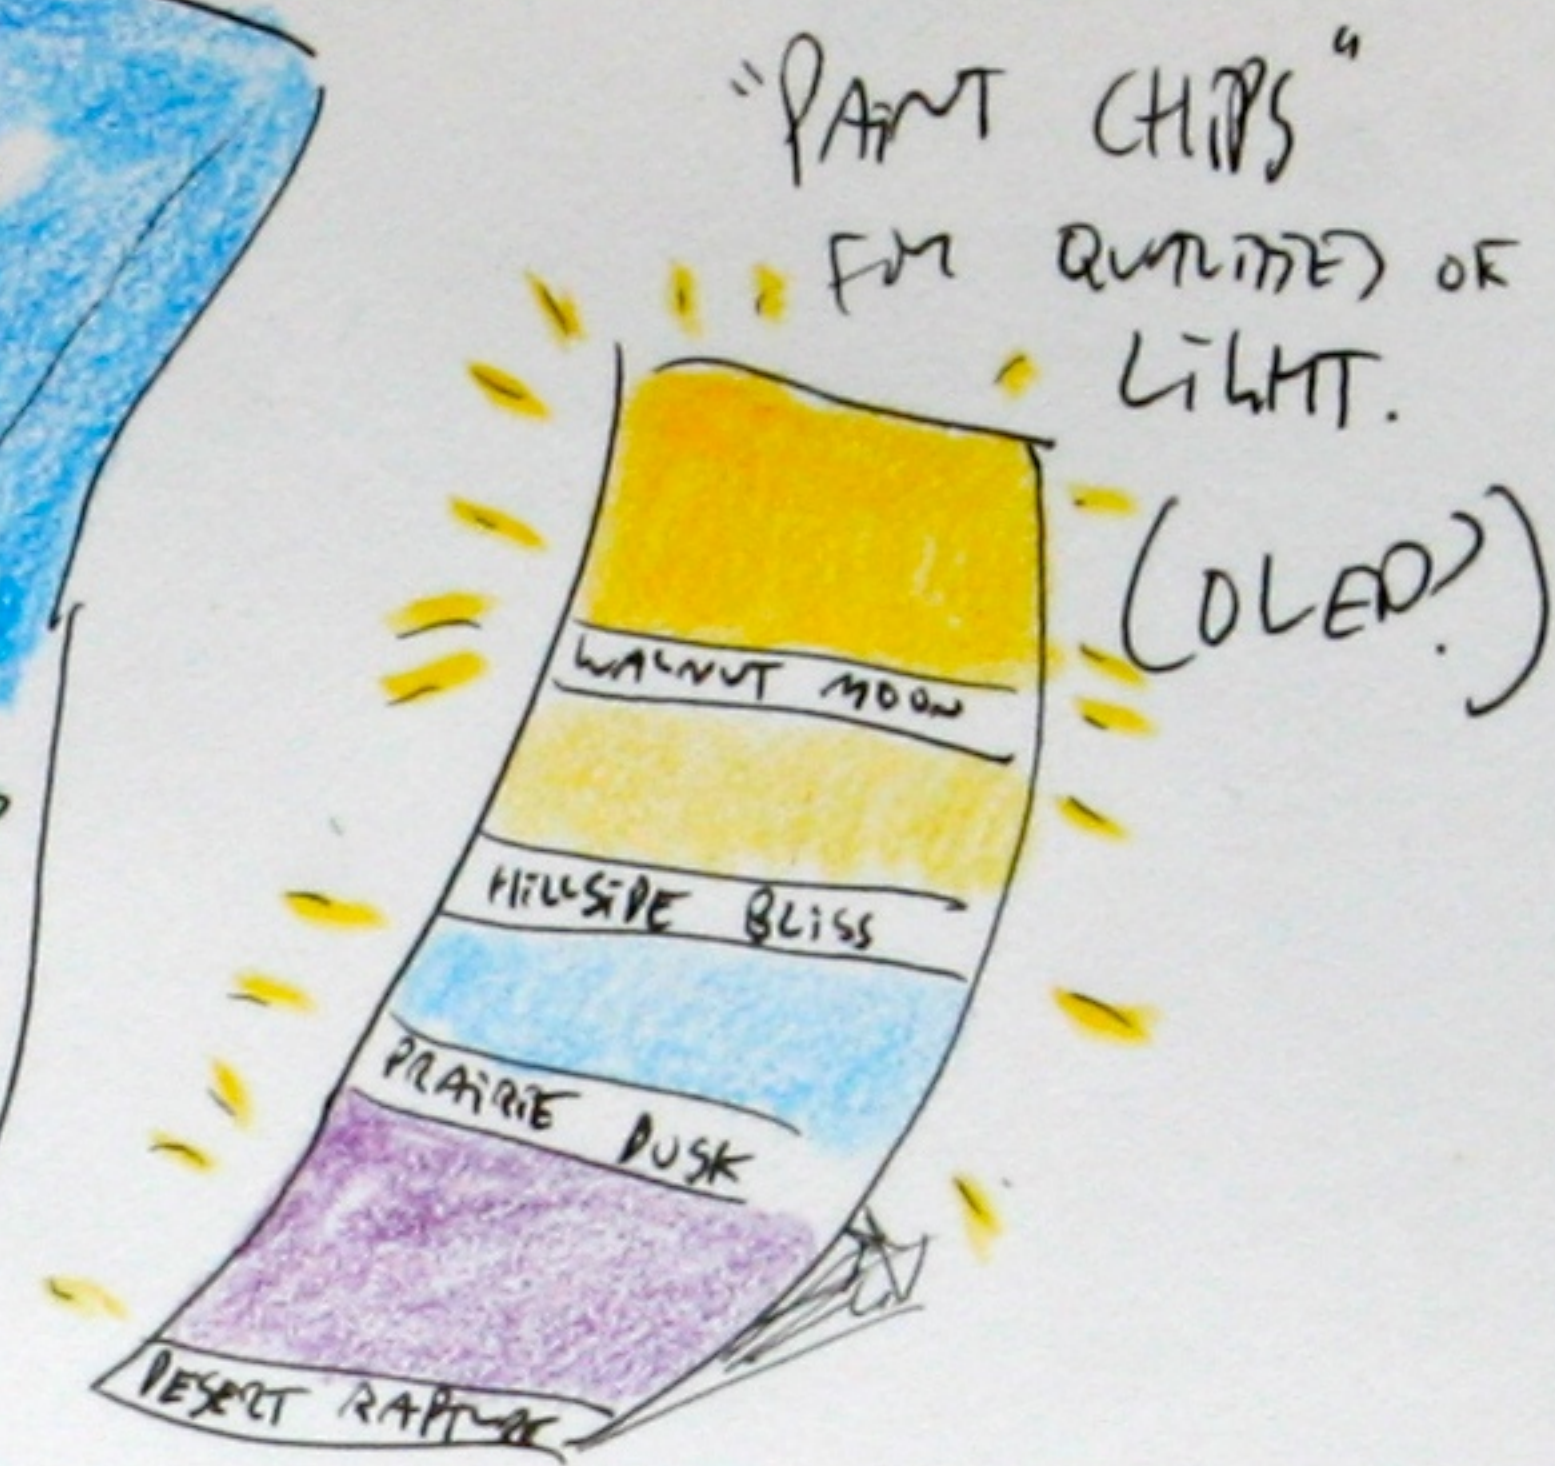 "PAiNT CHiPS"
FOR QUALITIES OF
LiGHT.
(OLED?)
WALNUT MOON
HiLLSiDE BLiSS
PRAiRiE DUSK
DESERT RAPTURE